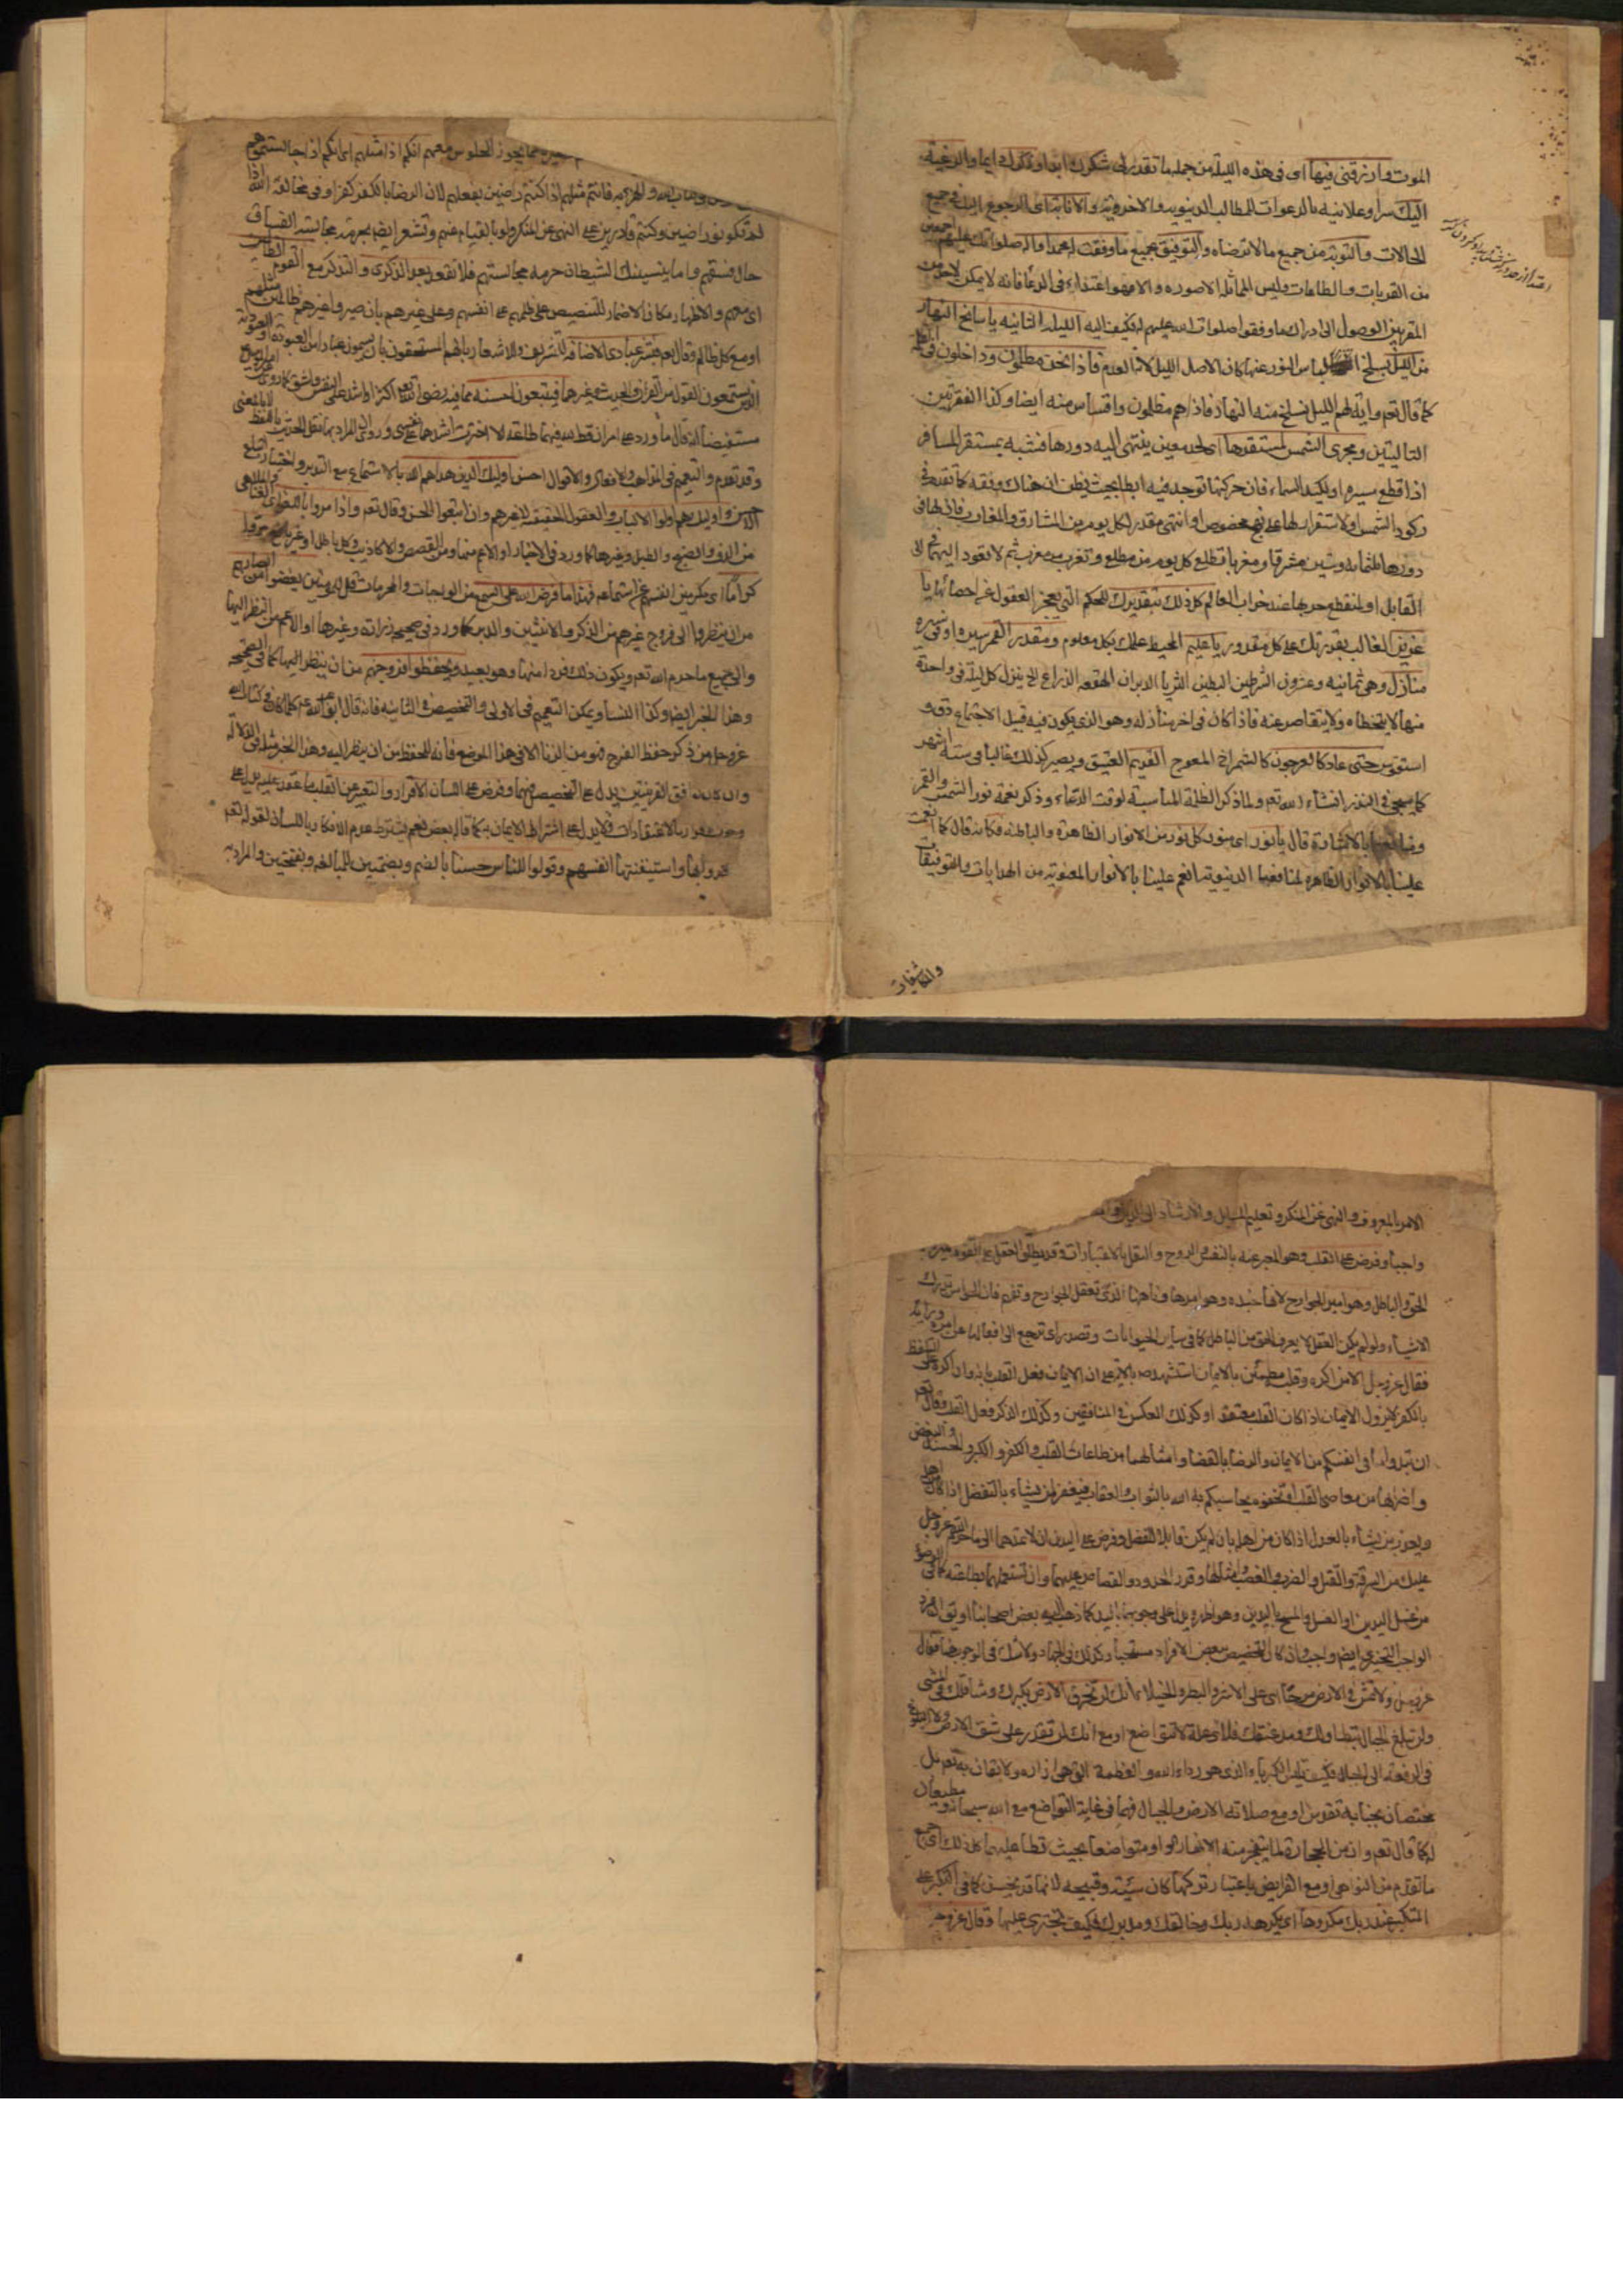 الموت وان ترزقنى فيها اى فى هذه الليلة من جملة ما تقدر لى شكرك ابدا وذكرك دايما والرغبة
اليك سرا وعلانية بالدعوات للمطالب الدنيوية والاخروية والانابة اى الرجوع اليك فى جميع
الحالات والتوبة من جميع ما لا ترضاه والتوفيق بجميع ما وفقت له محمدا وآله صلواتك عليهم اجمعين
من القربات والطاعات وليس المماثلة الا صورة والا فهو اعتداء فى الدعاء فانه لا يمكن لاحد من
المقربين الوصول الى ادراك ما وفقوا صلوات الله عليهم له فكيف اليه الليلة الثانية يا سالخ النهار
من الليل بسلخ لباس النور عنها كان الاصل الليل لانها العدم فاذا نحن مظلمون وداخلون فى الظلمة
كما قال تعم وآية لهم الليل نسلخ منه النهار فاذا هم مظلمون واقتباس منه ايضا وكذا الفقرتين
التاليتين ومجرى الشمس لمستقرها اى لحد معين ينتهى اليه دورها فشبه بمستقر المسافر
اذا قطع مسيره او لكبد السماء فان حركتها توجد فيه ابطا بحيث يظن ان هناك وقفة كما تقدم فى
ركود الشمس او لاستقرار لها على نهج مخصوص او انتهى مقدر لكل يوم من المشارق والمغارب فان لها فى
دورها ثلثمائة وستين مشرقا ومغربا تطلع كل يوم من مطلع وتغرب من مغرب ثم لا تعود اليهما الى
القابل او لمنقطع جريها عند خراب العالم كل ذلك بتقديرك للحكم التى يعجز العقول عن احصائها يا
عزيز الغالب بقدرتك على كل مقدور يا عليم المحيط علمك بكل معلوم ومقدر القمر سيره او فى سيره
منازل وهى ثمانية وعشرون الشرطين البطين الثريا الدبران الهقعه الذراع الخ ينزل كل ليلة فى واحدة
منها لا يتخطاه ولا يتقاصر عنه فاذا كان فى اخر منازله وهو الذى يكون فيه قبيل الاجتماع دق و
استقوس حتى عاد كالعرجون كالشمراخ المعوج القديم العتيق ويصير كذلك غالبا فى ستة اشهر
كما سيجئ فى النذر انشاء الله تعم ولما ذكر الظلمة المناسبة لوقت الدعاء وذكر نعمة نور الشمس والقمر
بالاشارة قال يا نور اى منور كل نور من الانوار الظاهرة والباطنة فكانه قال كما انعمت
علينا بالانوار الظاهرة لمنافعنا الدنيوية انعم علينا بالانوار المعنوية من الهدايات والتوفيقات
والكاشفات
مما يجوز الجلوس معهم انكم اذا مثلهم اى انكم اذا جالستموهم
فانتم مثلهم اذا كنتم راضين بفعلهم لان الرضا بالكفر كفر او فى مخالفة الله اذا
لم تكونوا راضين وكنتم قادرين على النهى عن المنكر ولو بالقيام عنهم وتشعر ايضا بحرمة مجالسة الفساق
حال فسقهم واما ينسينك الشيطان حرمة مجالستهم فلا تقعد بعد الذكرى والتذكر مع القوم الظالمين
اى معهم والاظهار مكان الاضمار للتنصيص على ظلمهم على انفسهم وعلى غيرهم
او مع كل ظالم وقال تعم فبشر عبادى الاضافة للتشريف وللاشعار بانهم المستحقون بان يسموا عبادا
الذين يستمعون القول من القران والحديث وغيرهما فيتبعون احسنه مما فيه رضى الله تعم اكثر او اشد على النفس
وقد تقدم والتعميم فى المذاهب والافعال والاقوال احسن اولئك الذين هداهم الله بالاستماع مع التدبر واختيار
واولئك هم اولوا الالباب والعقول الحقيقية لا غيرهم وان اتبعوا الحسن وقال تعم واذا مروا باللغو
من الدف والصنج والطبل وغيرها كما ورد فى الاخبار او الاعم منها ومن القصص والاكاذيب وكل باطل
كراما اى مكرمين انفسهم عن استماعه فهذا ما فرض الله على السمع من الواجبات والمحرمات قل للمؤمنين يغضوا من ابصارهم
من ان ينظروا الى فروج غيرهم من الذكر والانثيين والدبر كما ورد فى صحيحة زرارة وغيرها او الاعم من النظر اليها
والى جميع ما حرم الله تعم ويكون ذلك فردا منها وهو بعيد ويحفظوا فروجهم من ان ينظر اليها كما فى الصحيحة
وهذا الخبر ايضا وكذا النساء ويمكن التعميم فى الاولى والتخصيص فى الثانية فانه قال ابو عبد الله عم كلما كان فى كتاب الله
عز وجل من ذكر حفظ الفرج فهو من الزنا الا فى هذا الموضع فانه للحفظ من ان ينظر اليه وهذا الخبر مثله فى الدلالة
القرينتين يدل على التخصيص فيهما وفرض على اللسان الاقرار والتعبير عن القلب بما عقد عليه يدل على
لا يدل على اشتراط الايمان به كما قال بعض نعم يشترط عدم الانكار باللسان لقوله تعم
جحدوا بها واستيقنتها انفسهم وقولوا للناس حسنا بالضم وبضمتين للمبالغة وبفتحتين والمراد به
الامر بالمعروف والنهى عن المنكر وتعليم المسايل والارشاد الى
واجبا وفرض على القلب وهو المعبر عنه بالنفس والروح والعقل بالاعتبارات وقد يطلق العقل على القوه
الحق والباطل وهو امير الجوارح لانها جنده وهو اميرها وناهيها الذى تعقل الجوارح وتفهم فان الحواس تدرك
الاشياء ولو لم يكن العقل لا يعرف الحق من الباطل كما فى ساير الحيوانات وتصدر اى ترجع الى افعالها عن امره ورايه
فقال عز وجل الا من اكره وقلبه مطمئن بالايمان استشهد ص بالاية على ان الايمان فعل القلب بانه وان اكره على التلفظ
بالكفر لا يزول الايمان اذا كان القلب معتقدا وكذلك العكس فى المنافقين وكذلك الذكر فعل القلب وقال تعم
ان تبدوا ما فى انفسكم من الايمان والرضا بالقضا وامثالهما من طاعات القلب والكفر والكبر والحسد والبغض
واضرابها من معاصى القلب او تخفوه يحاسبكم به الله بالثواب والعقاب فيغفر لمن يشاء بالتفضل اذا كان من اهله
ويعذب من يشاء بالعدل اذا كان من اهله بان لم يكن قابلا للتفضل وفرض على اليدين ان لا تمدهما الى ما حرم الله عز وجل
عليك من السرقة والقتل والضرب والغصب وامثالها وقرر الحدود والقصاص عليهما وان تستعملهما بطاعته كما فى الوضوء
من غسل اليدين او الغسل والمسح باليدين وهو ظاهره يدل على وجوبهما باليد كما ذهب اليه بعض اصحابنا
الواجب التخييرى ايضا واجب وان كان التخصيص ببعض الافراد مستحبا وكذلك فى الجهاد ولا شك فى الوجوب فقال
عز وجل ولا تمش فى الارض مرحا اى على الاشر والبطر والخيلاء انك لن تخرق الارض بكبرك وشاقك فى المشى
ولن تبلغ الجبال بتطاولك ومد عنقك فلاى علة لا تتواضع او مع انك لن تقدر على شق الارض ولا البلوغ
فى الرفعة الى الجبال فكيف تلبس الكبرياء الذى هو رداء الله والعظمة التى هى ازاره ولا يقان به تعم بل
مختصان بجنابه تقدس او مع صلابة الارض والجبال فهما فى غاية التواضع مع الله سبحانه ومطيعان
له كما قال تعم وان من الحجارة لما يتفجر منه الانهار او متواضعا بحيث تطا عليهما كل ذلك اى جميع
ما تقدم من النواهى او مع الفرايض باعتبار تركها كان سيئه وقبيحه لانها قد يحسن كما فى التكبر على
المتكبر عند ربك مكروها اى يكرهه ربك وخالقك ومدبرك فكيف تجترى عليها وقال عز وجل